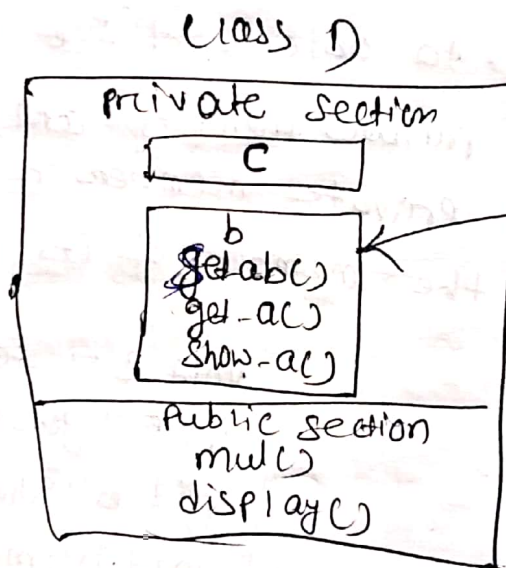 class D
private section
C
b
get-ab()
get-a()
show-a()
Public section
mul()
display()